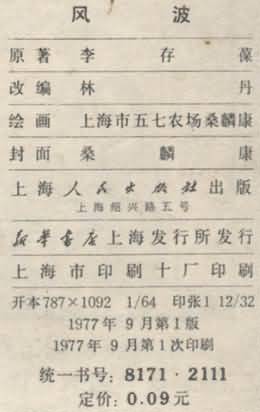 风波
原著 李存葆
改编 林丹
绘画 上海市五七农场桑麟康
封面 桑麟康
上海人民出版社出版
上海绍兴路五号
新华书店上海发行所发行
上海市印刷十厂印刷
开本787×1092 1/64 印张1 12/32
1977年9月第1版
1977年9月第1次印刷
统一书号：8171·2111
定价：0.09元